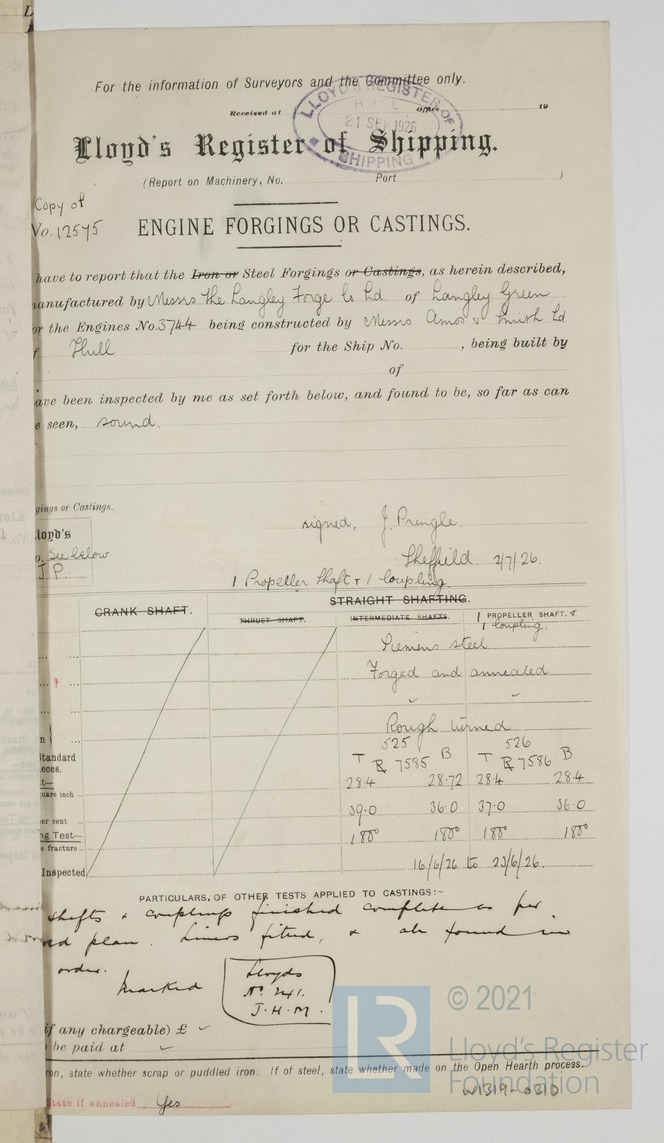 For the information of Surveyors and the Committee only.
Received at Office 19
LLOYD'S REGISTER OF SHIPPING
21 SEP 1926
Lloyd's Register of Shipping.
(Report on Machinery, No. Port )
Copy of
No. 12575
ENGINE FORGINGS OR CASTINGS.
have to report that the Iron or Steel Forgings or Castings, as herein described,
anufactured by Messrs The Langley Forge Co Ld of Langley Green
or the Engines No. 3744 being constructed by Messrs Amos & Smith Ld
f Hull for the Ship No. , being built by
of
ave been inspected by me as set forth below, and found to be, so far as can
e seen, sound.
gings or Castings.
signed, J. Pringle.
loyd's
o. See below
J.P.
Sheffield. 2/7/26.
1 Propeller Shaft & 1 coupling.
CRANK SHAFT.
STRAIGHT SHAFTING.
THRUST SHAFT. INTERMEDIATE SHAFTS. 1 PROPELLER SHAFT. &
1 coupling.
Siemens steel
Forged and annealed
Rough turned
525 526
tandard T R 7585 B T R 7586 B
eces.
t—
uare inch 28.4 28.72 28.4 28.4
er cent 39.0 36.0 37.0 36.0
ng Test— 180° 180° 180° 180°
e fracture
Inspected 16/6/26 to 23/6/26.
PARTICULARS, OF OTHER TESTS APPLIED TO CASTINGS:—
shafts & couplings finished complete as per
ed plan. Liners fitted, & all found in
order.
Marked
Lloyds
No. 241.
J.H.M.
if any chargeable) £
be paid at
ron, state whether scrap or puddled iron. If of steel, state whether made on the Open Hearth process.
State if annealed Yes
LR
© 2021
Lloyd's Register
Foundation
W1319-0310